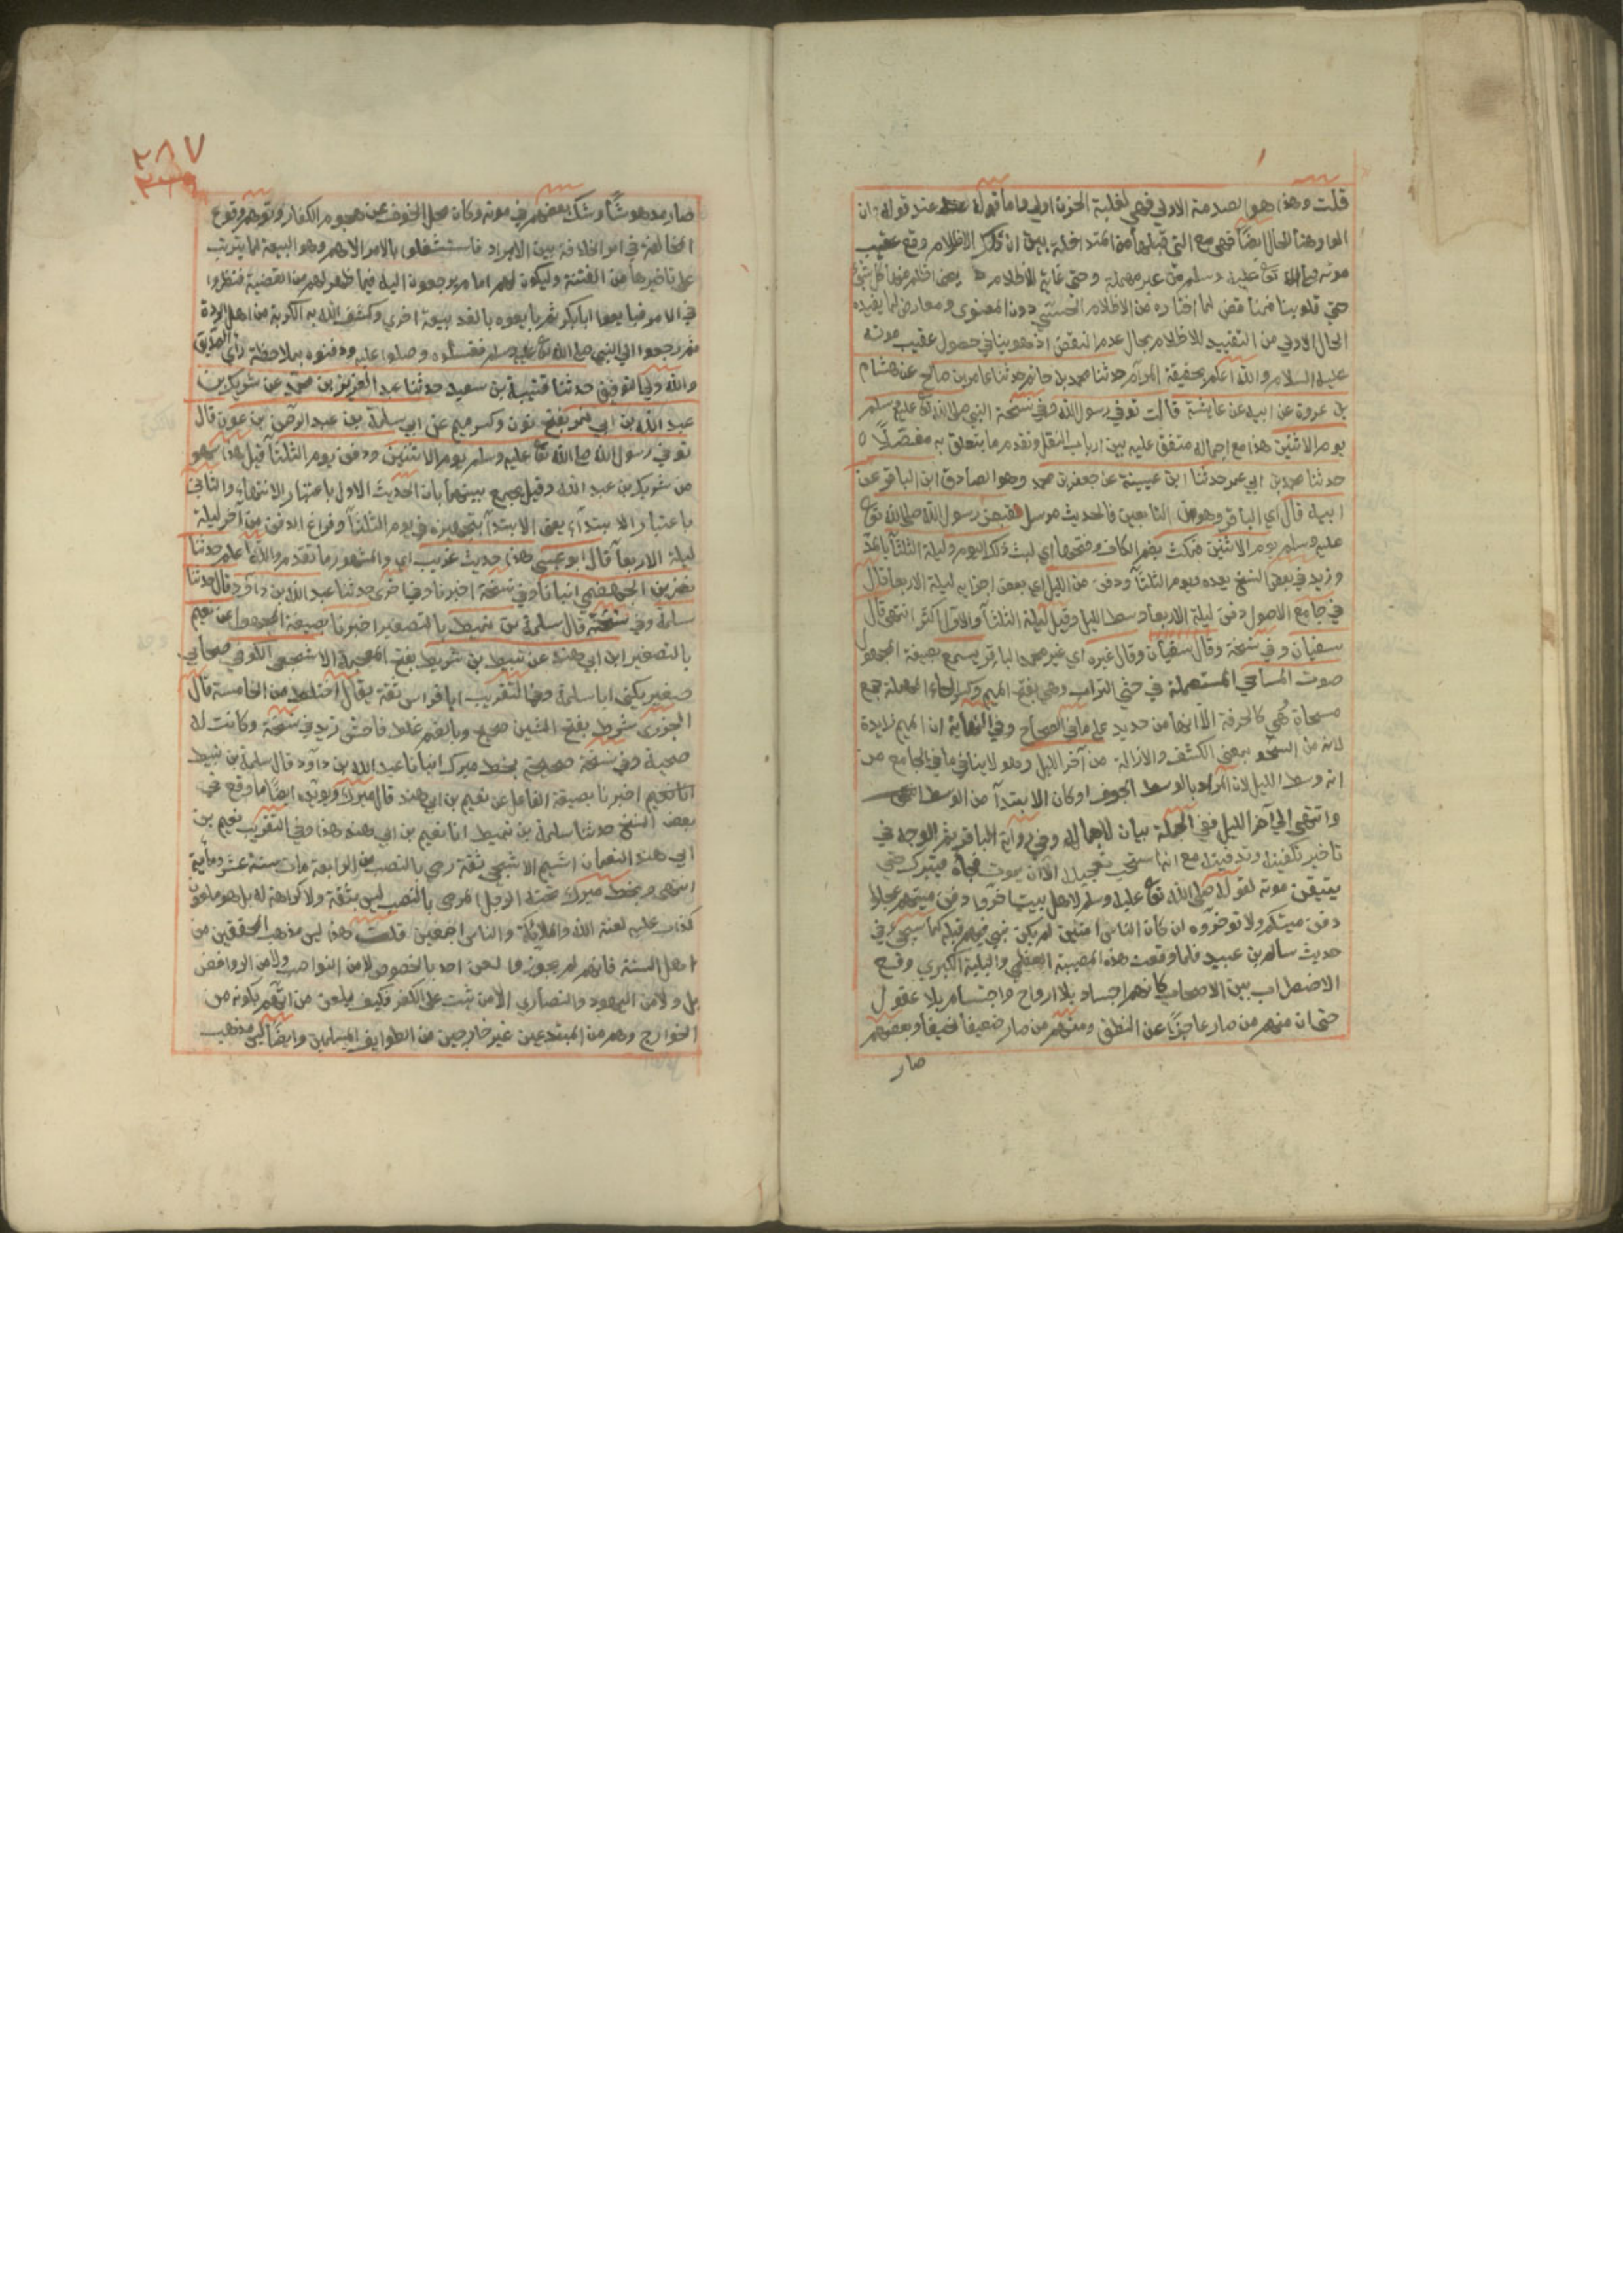 قلت وهذا هو الصدمة الاولى فهي لغلبة الحزن اولى واما قوله عند قوله وان
الواو هنا للحال ايضا فهي مع التي قبلها من المتداخلة بين ان ذلك الاظلام وقع عقيب
موته صلى الله تع عليه وسلم من غير مهملة وحتى غاية للاظلام يعني اظلم منها كل شيء
حتى قلوبنا فمناقض لما اختاره من الاظلام الحسي دون المعنوي ومعارض لما يفيده
الحال الاولى من التقييد للاظلام بحال عدم النقض اذ هو ينافي حصول عقيب موته
عليه السلام والله اعلم بحقيقة المرام حدثنا محمد بن حاتم حدثنا عامر بن صالح عن هشام
بن عروة عن ابيه عن عايشة قالت توفي رسول الله وفي نسخة النبي صلى الله تع عليه وسلم
يوم الاثنين هذا مع اجماله متفق عليه بين ارباب النقل وتقدم ما يتعلق به مفصلا ه
حدثنا محمد بن ابي عمر حدثنا ابن عيينة عن جعفر بن محمد وهو الصادق ابن الباقر عن
ابيه قال اي الباقر وهو من التابعين فالحديث مرسل فقبض رسول الله صلى الله تع
عليه وسلم يوم الاثنين فمكث بضم الكاف وفتحها اي لبث ذلك اليوم وليلة الثلثا بالمد
وزيد في بعض النسخ بعده ويوم الثلثا ودفن من الليل اي بعض اجزايه ليلة الاربعا قال
في جامع الاصول دفن ليلة الاربعا وسط الليل وقيل ليلة الثلثا والاول اكثر انتهى قال
سفيان وفي نسخة وقال سفيان وقال غيره اي غير محمد الباقر يسمع بصيغة المجهول
صوت المساحي المستعملة في حثي التراب وهي بفتح الميم وكسر الحاء المهملة جمع
مسحاة وهي كالمجرفة الا انها من حديد على ما في الصحاح وفي النهاية ان الميم زايدة
لانه من السحو بمعنى الكشف والازالة من آخر الليل وهو لا ينافي ما في الجامع من
انه وسط الليل لان المراد بالوسط الجوف او كان الابتدآ من الوسط
وانتهى الى آخر الليل ففي الجملة بيان لاجماله وفي رواية الباقر ثم الوجه في
تاخير تكفينه وتدفينه مع انه يستحب تعجيله الا ان يموت فجاة فيترك حتى
يتيقن موته لقوله صلى الله تع عليه وسلم لاهل بيت اخروا دفن ميتهم عجلوا
دفن ميتكم ولا توخروه ان كان الناس اميين لم يكن نبي فيهم قبله كما سيجيء في
حديث سالم بن عبيد فلما وقعت هذه المصيبة العظمى والبلية الكبرى وقع
الاضطراب بين الاصحاب كانهم اجساد بلا ارواح واجسام بلا عقول
حتى ان منهم من صار عاجزا عن النطق ومنهم من صار ضعيفا نحيفا وبعضهم
صار
٢٨٧
صار مدهوشا وشك بعضهم في موته وكان محل الخوف عن هجوم الكفار وتوهم وقوع
المخالفة في امر الخلافة بين الابرار فاستشغلوا بالامر الاهم وهو البيعة لما يترتب
على تاخيرها من الفتنة وليكون لهم امام يرجعون اليه فيما ظهر لهم من القضية فنظروا
في الامر فبايعوا ابابكر ثم بايعوه بالغد بيعة اخرى وكشف الله به الكربة من اهل الردة
ثم رجعوا الى النبي صلى الله تع عليه وسلم فغسلوه وصلوا عليه ودفنوه بملاحظة راي الصديق
والله ولي التوفيق حدثنا قتيبة بن سعيد حدثنا عبد العزيز بن محمد عن شريك بن
عبد الله بن ابي نمر بفتح نون وكسر ميم عن ابي سلمة بن عبد الرحمن بن عوف قال
توفي رسول الله صلى الله تع عليه وسلم يوم الاثنين ودفن يوم الثلثا قيل هذا سهو
من شريك بن عبد الله وقيل يجمع بينهما بان الحديث الاول باعتبار الانتهاء والثاني
باعتبار الابتدآء يعني الابتدآ بتجهيزه في يوم الثلثا وفراغ الدفن من آخر ليلة
ليلة الاربعا قال ابو عيسى هذا حديث غريب اي والمشهور ما تقدم والله اعلم حدثنا
نصر بن الجهضمي انبانا وفي نسخة اخبرنا وفي اخرى حدثنا عبد الله بن داود قال حدثنا
سلمة وفي نسخة قال سلمة بن نبيط بالتصغير اخبرنا بصيغة المجهول عن نعيم
بالتصغير ابن ابي هند عن نبيط بن شريط بفتح المعجمة الاشجعي الكوفي صحابي
صغير يكنى ابا سلمة وفي التقريب ابا فراس ثقة يقال اختلط من الخامسة قال
الجزري شريط بفتح الشين صحيح وبالضم غلط فاحش زيد في نسخة وكانت له
صحبة وفي نسخة صحيحة بخط ميرك انبانا عبد الله بن داود قال سلمة بن نبيط
انا نعيم اخبرنا بصيغة الفاعل عن نعيم بن ابي هند قال ميرك ويؤيده ايضا ما وقع في
بعض النسخ حدثنا سلمة بن نبيط انا نعيم بن ابي هند هذا وفي التقريب نعيم بن
ابي هند النعمان اشيم الاشجعي ثقة رمي بالنصب من الرابعة مات سنة عشر ومأية
انتهى وبخط ميرك تحته الرجل المرمي بالنصب ليس بثقة ولا كرامة له بل هو ملعون
كذاب عليه لعنة الله والملائكة والناس اجمعين قلت وهذا ليس مذهب المحققين من
اهل السنة فانهم لم يجوزوا لعن احد بالخصوص لا من النواصب ولا من الروافض
بل ولا من اليهود والنصارى الا من ثبت على الكفر فكيف يلعن من اتهم بكونه من
الخوارج وهم من المبتدعين غير خارجين من الطوايف المسلمين وايضا ليس مذهب